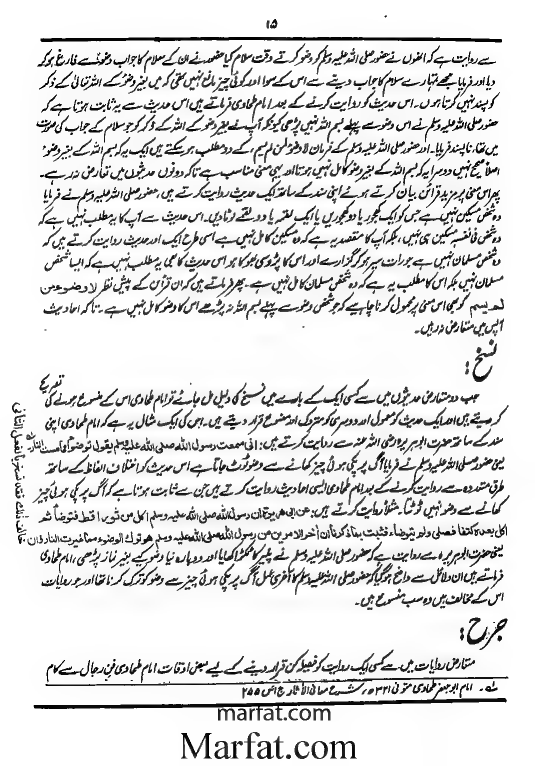 ۱۵
سے روایت ہے کہ انھوں نے حضور صلی اللہ علیہ وسلم کو وضو کرتے وقت سلام کیا حضور نے ان کے سلام کا جواب وضو سے فارغ ہو کر
دیا اور فرمایا مجھے تمہارے سلام کا جواب دینے سے اس کے سوا اور کوئی چیز مانع نہیں تھی کہ میں بغیر وضو کے اللہ تعالیٰ کے ذکر
کو پسند نہیں کرتا ہوں۔ اس حدیث کو روایت کرنے کے بعد امام طحاوی فرماتے ہیں اس حدیث سے یہ ثابت ہوتا ہے کہ
حضور صلی اللہ علیہ وسلم نے اس وضو سے پہلے بسم اللہ نہیں پڑھی کیونکہ آپ نے بغیر وضو کے اللہ کے ذکر کو جو سلام کے جواب کی صورت
میں تھا، ناپسند فرمایا۔ اور حضور صلی اللہ علیہ وسلم کے فرمان لا وضو لمن لم یسم کے دو مطلب ہو سکتے ہیں ایک یہ کہ بسم اللہ کے بغیر وضو
اصلاً صحیح نہیں دوسرا یہ کہ بسم اللہ کے بغیر وضو کامل نہیں ہوتا اور یہی معنی مناسب ہے تاکہ دونوں حدیثوں میں تعارض نہ رہے۔
پھر اس معنی پر مزید قرائن بیان کرتے ہوئے اپنی سند کے ساتھ ایک حدیث روایت کرتے ہیں، حضور صلی اللہ علیہ وسلم نے فرمایا
وہ شخص مسکین نہیں ہے جس کو ایک کھجور یا دو کھجوریں یا ایک لقمے یا دو لقمے لوٹا دیں۔ اس حدیث سے آپ کا یہ مطلب نہیں ہے کہ
وہ شخص فی نفسہ مسکین ہی نہیں، بلکہ آپ کا مقصد یہ ہے کہ وہ مسکین کامل نہیں ہے اسی طرح ایک اور حدیث روایت کرتے ہیں کہ
وہ شخص مسلمان نہیں ہے جو رات سیر ہو کر گزارے اور اس کا پڑوسی بھوکا ہو اس حدیث کا بھی یہ مطلب نہیں ہے کہ ایسا شخص
مسلمان نہیں بلکہ اس کا مطلب یہ ہے کہ وہ شخص مسلمان کامل نہیں ہے۔ پھر فرماتے ہیں کہ ان قرائن کے پیش نظر لا وضوء لمن
لم یسم کو بھی اس معنی پر محمول کرنا چاہیے کہ جو شخص وضو سے پہلے بسم اللہ نہ پڑھے اس کا وضو کامل نہیں ہے۔ تاکہ احادیث
آپس میں متعارض نہ رہیں۔
نسخ :
جب دو متعارض حدیثوں میں سے کسی ایک کے بارے میں نسخ کی دلیل مل جائے تو امام طحاوی اس کے منسوخ ہونے کی تصریح
کر دیتے ہیں اور ایک حدیث کو معمول اور دوسری کو متروک اور منسوخ قرار دیتے ہیں۔ اس کی ایک مثال یہ ہے کہ امام طحاوی اپنی
سند کے ساتھ حضرت ابو ہریرہ رضی اللہ عنہ سے روایت کرتے ہیں: انی سمعت رسول اللہ صلی اللہ علیہ وسلم یقول توضؤا مما مست النار
یعنی حضور صلی اللہ علیہ وسلم نے فرمایا آگ پر پکی ہوئی چیز کھانے سے وضو ٹوٹ جاتا ہے اس حدیث کو اختلاف الفاظ کے ساتھ
طرق متعددہ سے روایت کرنے کے بعد امام طحاوی ایسی احادیث روایت کرتے ہیں جن سے ثابت ہوتا ہے کہ آگ پر پکی ہوئی چیز
کھانے سے وضو نہیں ٹوٹتا مثلاً روایت کرتے ہیں: عن ابی ھریرۃ ان رسول اللہ صلی اللہ علیہ وسلم اکل من ثور اقط فتوضأ ثم
اکل بعدہ کتفا فصلی ولم یتوضأ، فثبت بما ذکرنا ان اٰخر الامرین من رسول اللہ صلی اللہ علیہ وسلم ھو ترک الوضوء مما غیرت النار فان
خالف ذلک فقد نسخ بالفعل الثانی
یعنی حضرت ابو ہریرہ سے روایت ہے کہ حضور صلی اللہ علیہ وسلم نے پنیر کا ٹکڑا کھایا اور دوبارہ نیا وضو کیے بغیر نماز پڑھی، امام طحاوی
فرماتے ہیں ان دلائل سے واضح ہو گیا کہ حضور صلی اللہ علیہ وسلم کا آخری عمل آگ پر پکی ہوئی چیز سے وضو کو ترک کرنا تھا اور جو روایات
اس کے مخالف ہیں وہ سب منسوخ ہیں۔
جرح :
متعارض روایات میں سے کسی ایک روایت کو فیصلہ کن قرار دینے کے لیے بعض اوقات امام طحاوی فن رجال سے کام
لے۔ امام ابو جعفر طحاوی متوفی ۳۲۱ھ، شرح معانی الآثار ج۱ ص ۲۵۵
marfat.com
Marfat.com